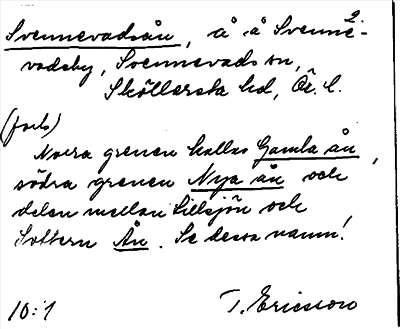 Svennevadsån, å å Svenne-2
vadsby, Svennevads sn,
Sköllersta hd, Ör. l.
(forts)
Norra grenen kallas Gamla ån,
södra grenen Nya ån och
delen mellan Lillsjön och
Sottern Ån. Se dessa namn!
10:1 T. Ericsson